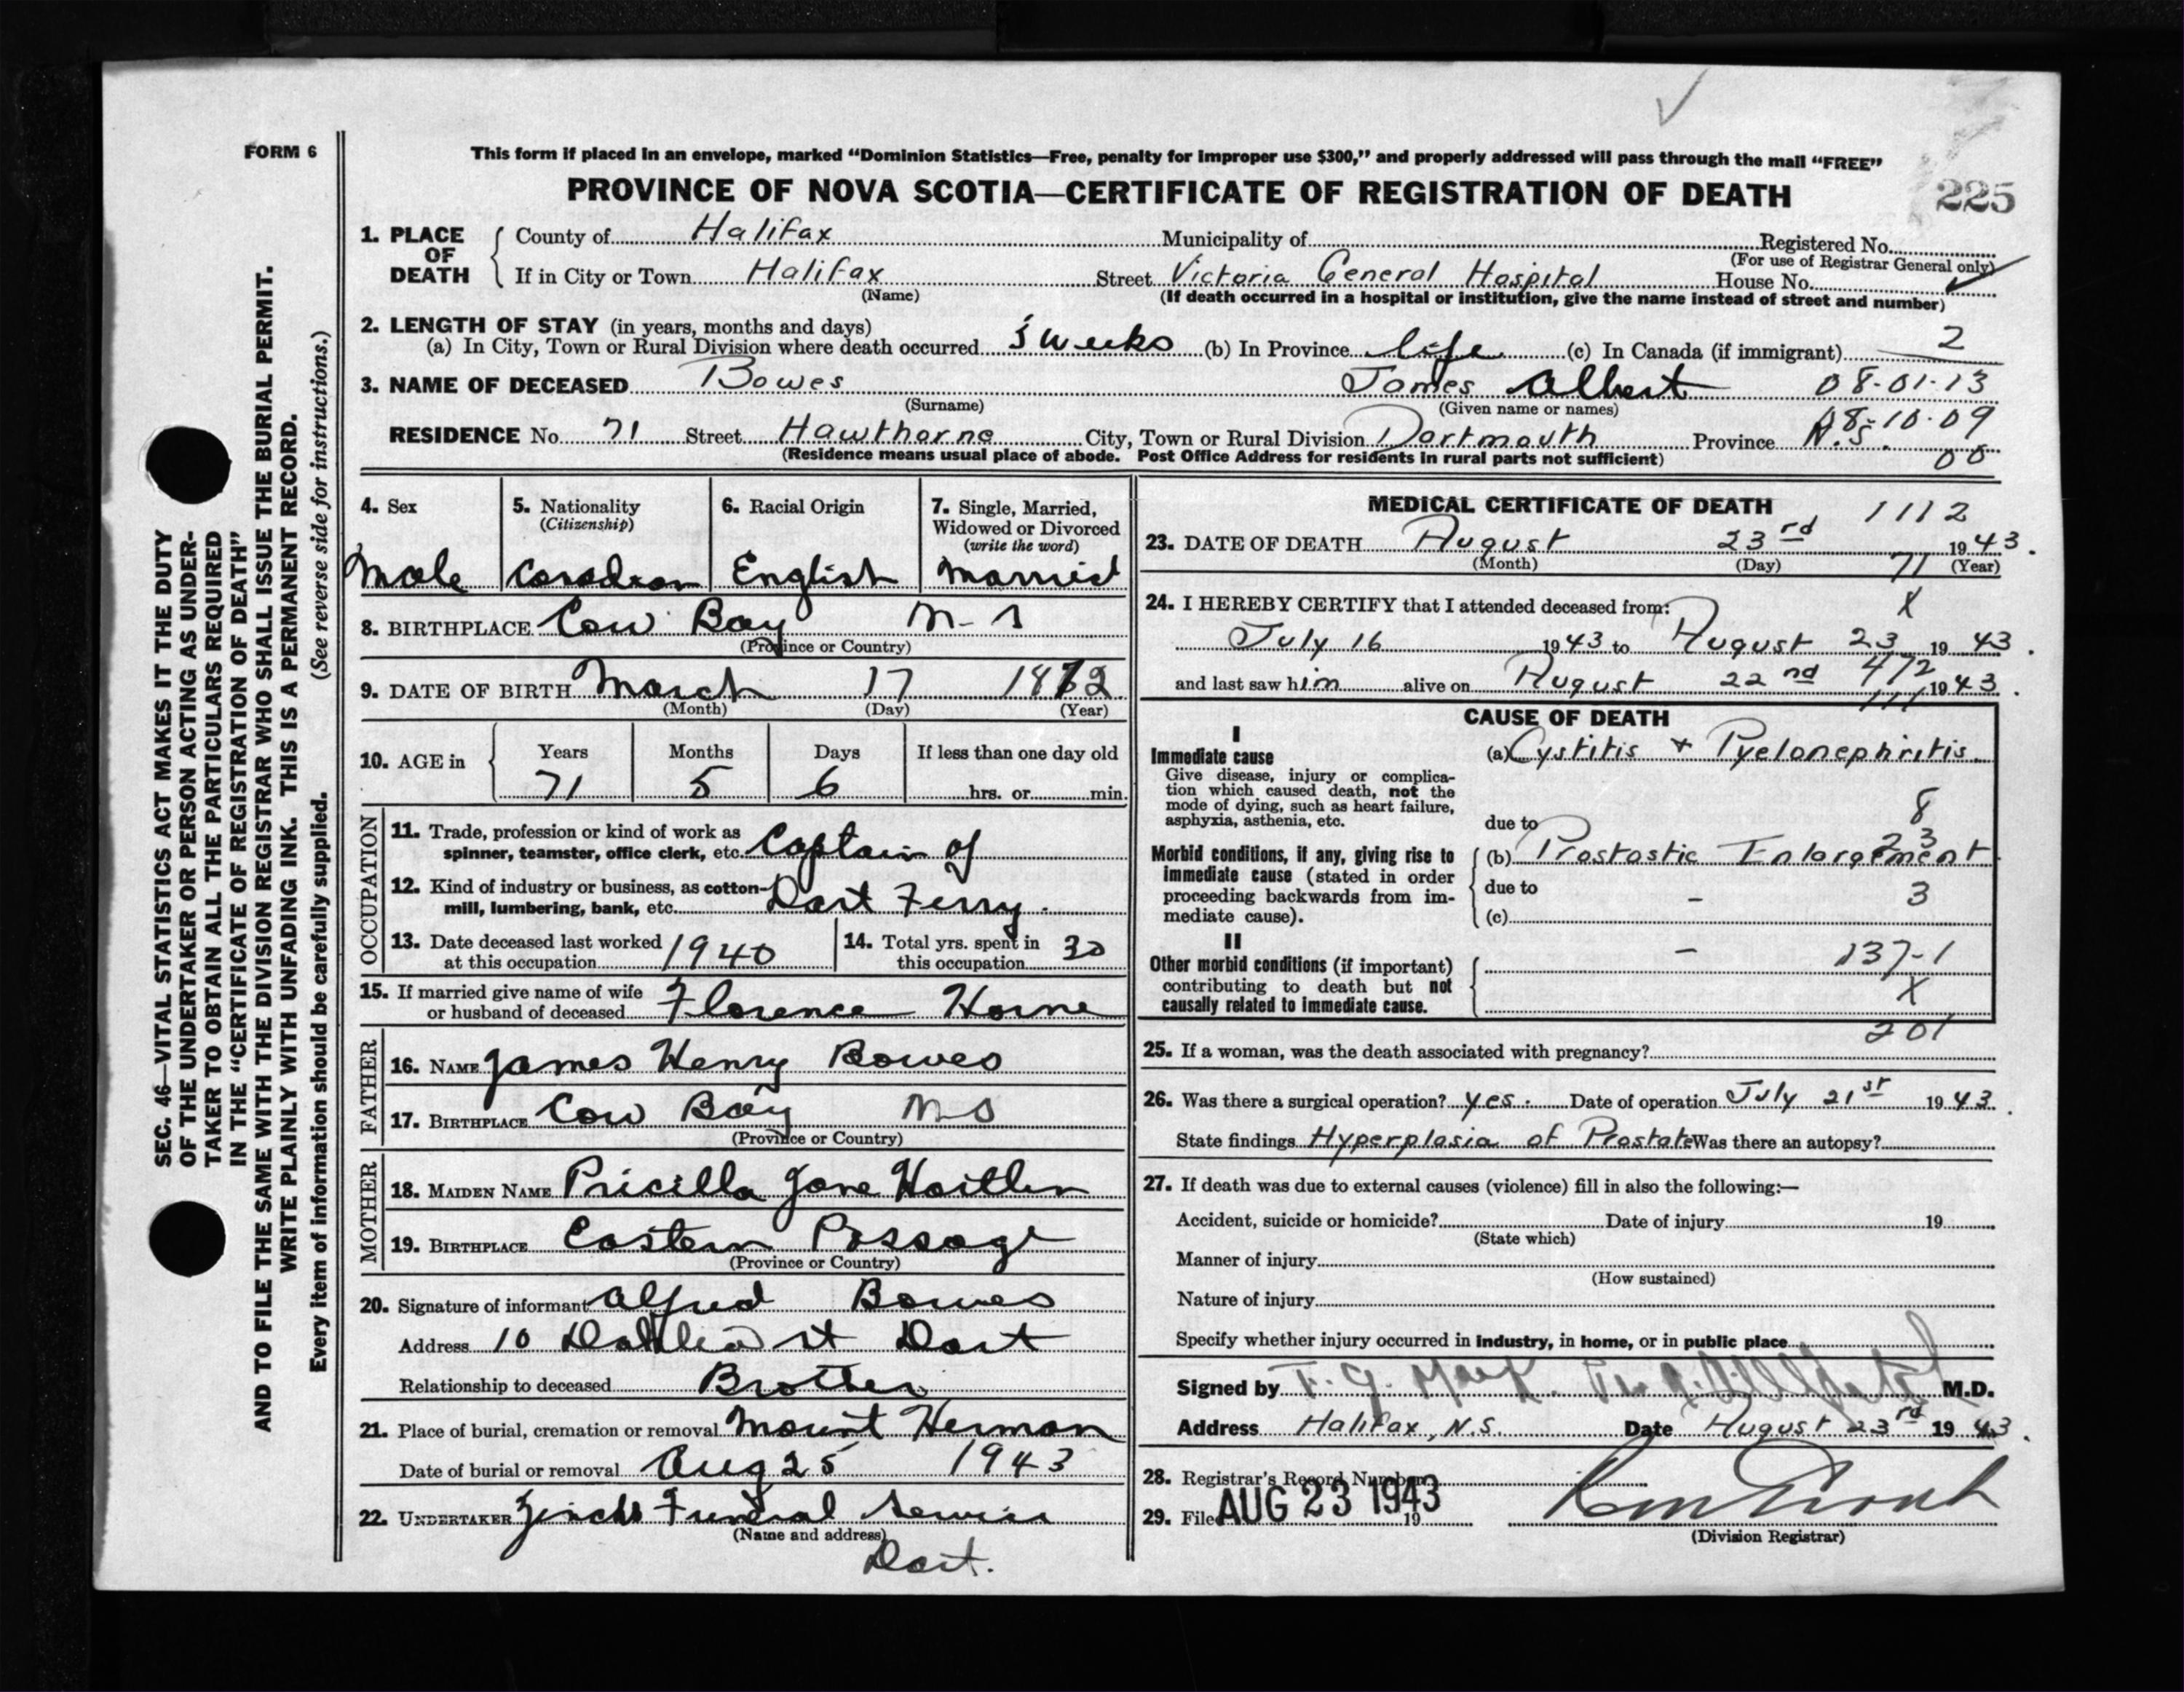 FORM 6
SEC. 46—VITAL STATISTICS ACT MAKES IT THE DUTY
OF THE UNDERTAKER OR PERSON ACTING AS UNDER-
TAKER TO OBTAIN ALL THE PARTICULARS REQUIRED
IN THE "CERTIFICATE OF REGISTRATION OF DEATH"
AND TO FILE THE SAME WITH THE DIVISION REGISTRAR WHO SHALL ISSUE THE BURIAL PERMIT.
WRITE PLAINLY WITH UNFADING INK. THIS IS A PERMANENT RECORD.
Every item of information should be carefully supplied. (See reverse side for instructions.)
This form if placed in an envelope, marked "Dominion Statistics—Free, penalty for improper use $300," and properly addressed will pass through the mail "FREE"
PROVINCE OF NOVA SCOTIA—CERTIFICATE OF REGISTRATION OF DEATH 225
1. PLACE OF DEATH County of Halifax Municipality of Registered No.
(For use of Registrar General only)
If in City or Town Halifax Street Victoria General Hospital House No.
(Name) (If death occurred in a hospital or institution, give the name instead of street and number)
2. LENGTH OF STAY (in years, months and days)
(a) In City, Town or Rural Division where death occurred 5 weeks (b) In Province life (c) In Canada (if immigrant) 2
3. NAME OF DECEASED Bowes James Albert 08-01-13
(Surname) (Given name or names)
RESIDENCE No. 71 Street Hawthorne City, Town or Rural Division Dartmouth Province N.S. 08-10-09
(Residence means usual place of abode. Post Office Address for residents in rural parts not sufficient) 00
4. Sex 5. Nationality 6. Racial Origin 7. Single, Married,
(Citizenship) Widowed or Divorced
(write the word)
Male Canadian English Married
8. BIRTHPLACE Cow Bay N-S
(Province or Country)
9. DATE OF BIRTH March 17 1872
(Month) (Day) (Year)
10. AGE in Years Months Days If less than one day old
71 5 6 hrs. or min.
OCCUPATION
11. Trade, profession or kind of work as
spinner, teamster, office clerk, etc. Captain of
12. Kind of industry or business, as cotton-
mill, lumbering, bank, etc. Dart Ferry.
13. Date deceased last worked
at this occupation 1940
14. Total yrs. spent in
this occupation 30
15. If married give name of wife
or husband of deceased Florence Horne
FATHER
16. NAME James Henry Bowes
17. BIRTHPLACE Cow Bay N S
(Province or Country)
MOTHER
18. MAIDEN NAME Pricilla Jane
19. BIRTHPLACE Eastern Passage
(Province or Country)
20. Signature of informant Alfred Bowes
Address 10 Dahlia St Dart
Relationship to deceased Brother
21. Place of burial, cremation or removal Mount Herman
Date of burial or removal Aug 25 1943
22. UNDERTAKER Funeral Service
(Name and address)
Dart.
MEDICAL CERTIFICATE OF DEATH 1112
23. DATE OF DEATH August 23rd 1943.
(Month) (Day) 71 (Year)
24. I HEREBY CERTIFY that I attended deceased from: X
July 16 1943 to August 23 1943.
and last saw him alive on August 22nd 1943.
472
111
CAUSE OF DEATH
I
Immediate cause
Give disease, injury or complica-
tion which caused death, not the
mode of dying, such as heart failure,
asphyxia, asthenia, etc.
(a) Cystitis + Pyelonephritis.
due to 8
Morbid conditions, if any, giving rise to
immediate cause (stated in order
proceeding backwards from im-
mediate cause).
(b) Prostastic Enlargement 23
due to 3
(c) -
II
Other morbid conditions (if important)
contributing to death but not
causally related to immediate cause.
- 137-1
X
201
25. If a woman, was the death associated with pregnancy?
26. Was there a surgical operation? yes. Date of operation July 21st 1943.
State findings Hyperplasia of Prostate Was there an autopsy?
27. If death was due to external causes (violence) fill in also the following:—
Accident, suicide or homicide? Date of injury 19
(State which)
Manner of injury
(How sustained)
Nature of injury
Specify whether injury occurred in industry, in home, or in public place
Signed by M.D.
Address Halifax, N.S. Date August 23rd 1943.
28. Registrar's Record Number
29. Filed AUG 23 1943 19
(Division Registrar)